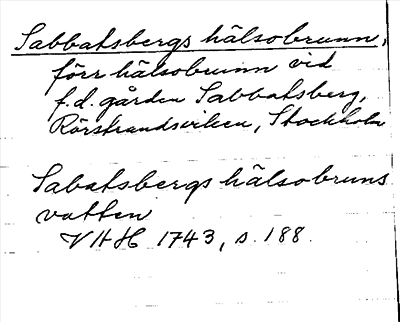 Sabbatsbergs hälsobrunn,
förr hälsobrunn vid
f.d. gården Sabbatsberg,
Rörstrandsviken, Stockholm
Sabatsbergs hälsobruns
vatten
VHH 1743, s. 188.